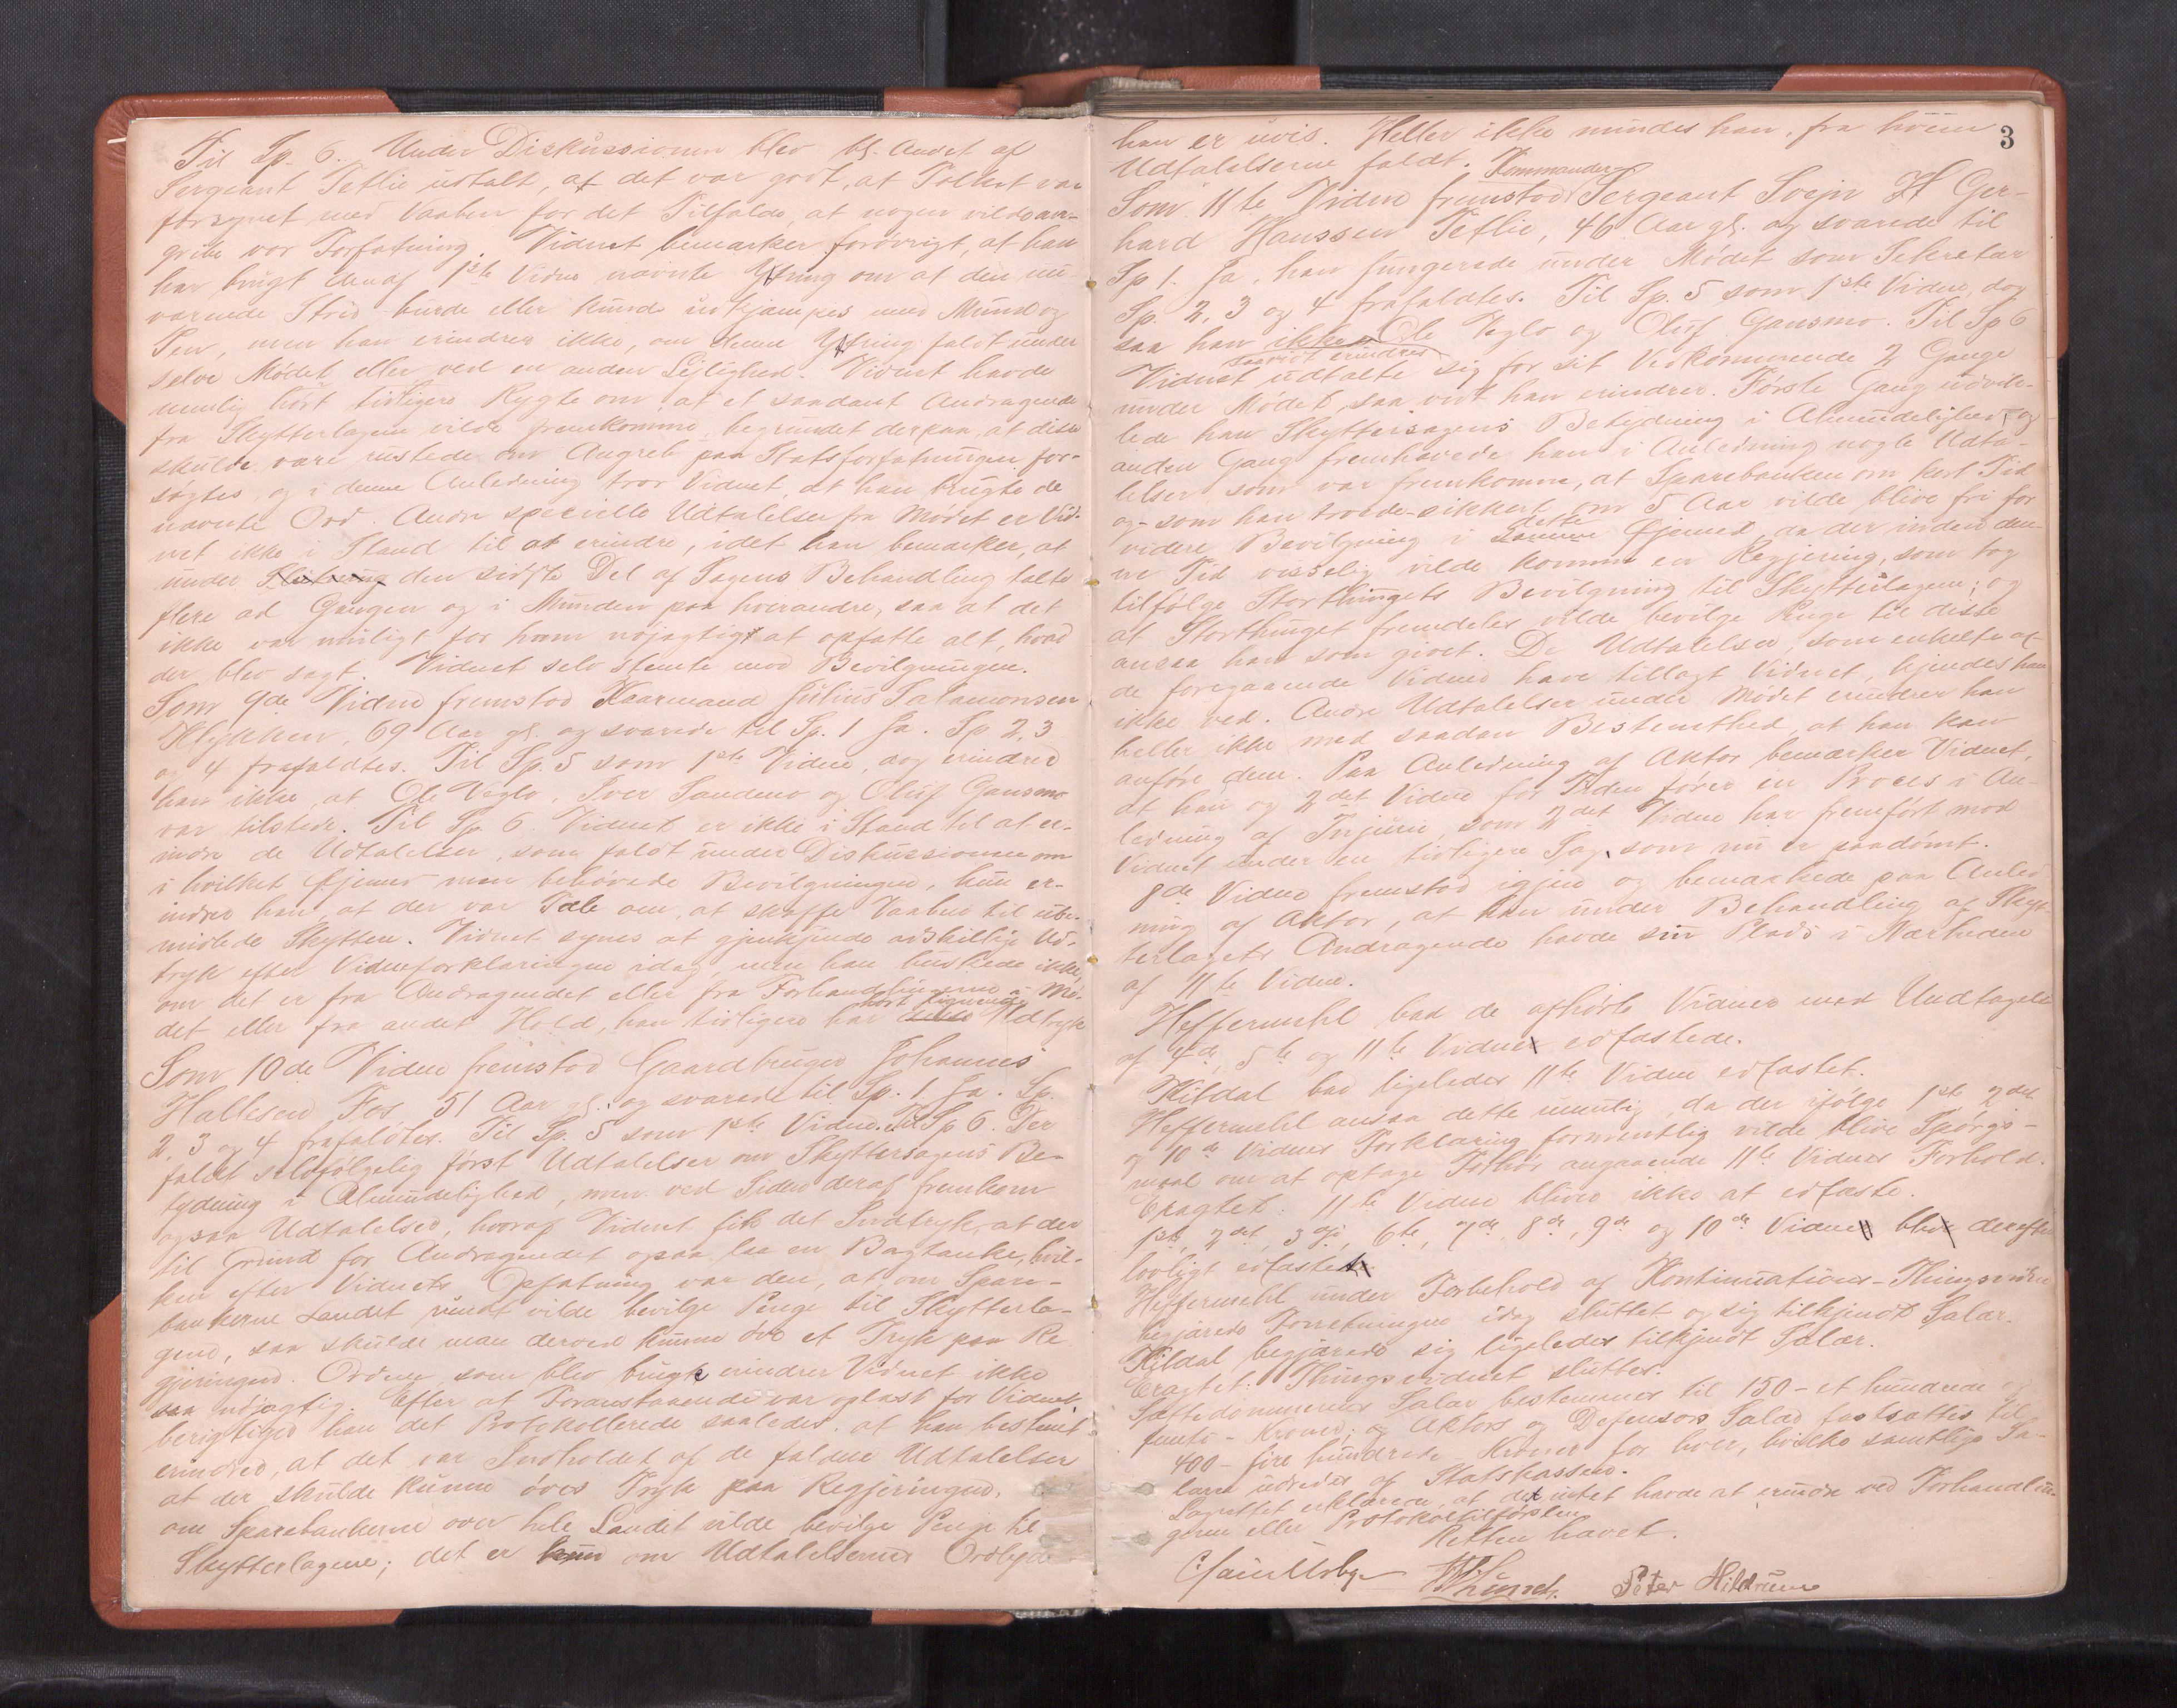 Til Sp. 6. Under Diskussionen blev bl. Andet af
Sergeant Teflie udtalt, at det var godt, at Folket var
forsynet med Vaaben for det Tilfælde, at nogen vilde an-
gribe vor Forfatning. Vidnet bemærker forøvrigt, at han
har brugt den af 1ste Vidne nævnte Ytring om at den nu-
værende Strid burde eller kunde udkjæmpes med Mund og
Pen, men han erindrer ikke, om denne Ytring faldt under
selve Mødet eller ved en anden Leilighed. Vidnet havde
nemlig hørt tidligere Rygte om, at et saadant Andragende
fra Skytterlagene vilde fremkomme, begrundet derpaa, at disse
skulde være rustede om Angreb paa Statsforfatningen for-
søgtes, og i denne Anledning tror Vidnet, at han brugte de
nævnte Ord. Andre specielle Udtalelser fra Mødet er Vid-
net ikke i Stand til at erindre, idet han bemærker, at
under den sidste Del af Sagens Behandling talte
flere ad Gangen og i Munden paa hverandre, saa at det
ikke var muligt for ham nøjagtigt at opfatte alt, hvad
der blev sagt. Vidnet selv stemte mod Bevilgningen.
Som 9de Vidne fremstod Kaarmand Julius Salamonsen
Klykken, 69 Aar gl. og svarede til Sp. 1 Ja. Sp 2, 3
og 4 frafaldtes. Til Sp. 5 som 1ste Vidne, dog erindred
han ikke, at Ole Veglo, Iver Sandeno og Oluf Gansmo
var tilstede. Til Sp. 6. Vidnet er ikke i Stand til at er-
indre de Udtalelser, som faldt under Diskussionen om
i hvilket Øjemed man behøvede Bevilgningen, kun er-
indrer han, at der var Tale om, at skaffe Vaaben til ube-
midlede Skyttere. Vidnet synes at gjenkjende adskillige Ud-
tryk efter Vidneforklaringen idag, men han huskede ikke,
om det er fra Andragendet eller fra Forhandlingerne i Mø-
det eller fra andet Hold, han tidligere har hørt lignende Udtryk
Som 10de Vidne fremstod Gaardbruger Johannes
Hallesen Fos, 51 Aar gl. og svarede til Sp. 1 Ja. Sp.
2, 3 og 4 frafaldtes. Til Sp. 5 som 1ste Vidne. Til Sp 6. Der
faldt selvfølgelig først Udtalelser om Skyttersagens Be-
tydning i Almindelighed, men ved Siden deraf fremkom
ogsaa Udtalelser, hvoraf Vidnet fik det Indtryk, at der
til Grund for Andragendet ogsaa laa en Bagtanke, hvil-
ken efter Vidnets Opfatning var den, at, om Spare-
bankerne Landet rundt vilde bevilge Penge til Skytterla-
gene, saa skulde man derved kunne øve et Tryk paa Re
gjeringen. Ordene, som blev brugt erindrer Vidnet ikke
saa nøjagtig. Efter at Foranstaaende var oplæst for Vidnet,
berigtiged han det Protokollerede saaledes, at han bestemt
erindred, at det var Indholdet af de faldne Udtalelser
at der skulde kunne øves Tryk paa Regjeringen,
om Sparebankerne over hele Landet vilde bevilge Penge til
Skytterlagene; det er kun om Udtalelsernes Ordlyd
3
han er uvis. Heller ikke mindes han, fra hvem
Udtalelserne faldt.
Kommander
Som 11te Vidne fremstod Sergeant Svejn H Ger-
hard Hanssen Teflie, 46 Aar gl. og svarede til
Sp 1. Ja, han fungerede under Mødet som Sekretær
Sp. 2, 3 og 4 frafaldtes. Til Sp. 5 som 1ste Vidne, dog
saa han ikke Ole Veglo og Oluf Gansmo. Til Sp 6
saavidt erindres
Vidnet udtalte sig for sit Vedkommende 2 Gange
under Mødet, saa vidt han erindrer. Første Gang udvik-
lede han Skyttersagens Betydning i Almindelighed, og
anden Gang fremhævede han i Anledning nogle Udta-
lelser som var fremkomne, at Sparebanken om kort Tid
og - som han troede - sikkert om 5 Aar vilde blive fri for
videre Bevilgning i dette Øjemed, da der inden den-
ne Tid visselig vilde komme en Regjering, som tog
tilfølge Storthingets Bevilgning til Skytterlagene; og
at Storthinget fremdeles vilde bevilge Penge til disse
ansaa han som givet. De Udtalelser, som enkelte af
de foregaaende Vidner have tillagt Vidnet, kjendes han
ikke ved. Andre Udtalelser under Mødet erindrer han
heller ikke med saadan Bestemthed, at han kan
anføre dem. Paa Anledning af Aktor bemærker Vidnet,
at han og 2det Vidne for Tiden fører en Proces i An-
ledning af Injurie, som 2det Vidne har fremført mod
Vidnet under en tidligere Sag, som nu er paadømt.
8de Vidne fremstod igjen og bemærkede paa Anled-
ning af Aktor, at han under Behandling af Skyt-
terlagets Andragende havde sin Plads i Nærheden
af 11te Vidne.
Heffermehl bad de afhørte Vidner med Undtagelse
af 4de, 5te og 11te Vidne edfæstede.
Kildal bad ligeledes 11te Vidne edfæstet.
Heffermehl ansaa dette umulig, da der ifølge 1ste 2det
og 10de Vidnes Forklaring formentlig vilde blive Spørgs-
maal om at optage Forhør angaaende 11te Vidnes Forhold.
Eragtet: 11te Vidne bliver ikke at edfæste.
1ste, 2det, 3die, 6te, 7de, 8de, 9de og 10de Vidne blev derefter
lovligt edfæstet.
Heffermehl under Forbehold af Kontinuations-Thingsvidne
begjærede Forretningen idag sluttet og sig tilkjendt Salar.
Kildal begjærede sig ligeledes tilkjendt Salær.
Eragtet: Thingsvidnet sluttes.
Sættedommerens Salar bestemmes til 150 - et hundrede og
femti - Kroner; og Aktors og Defensors Salær fastsættes til
400 - fire hundrede Kroner for hver, hvilke samtlige Sa-
larer udredes af Statskassen.
Lagrettet erklærede, at det intet havde at erindre ved Forhandlin-
gerne eller Protokoltilførslen.
Retten hævet.
Peter Hildrum